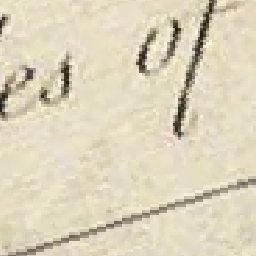 es of